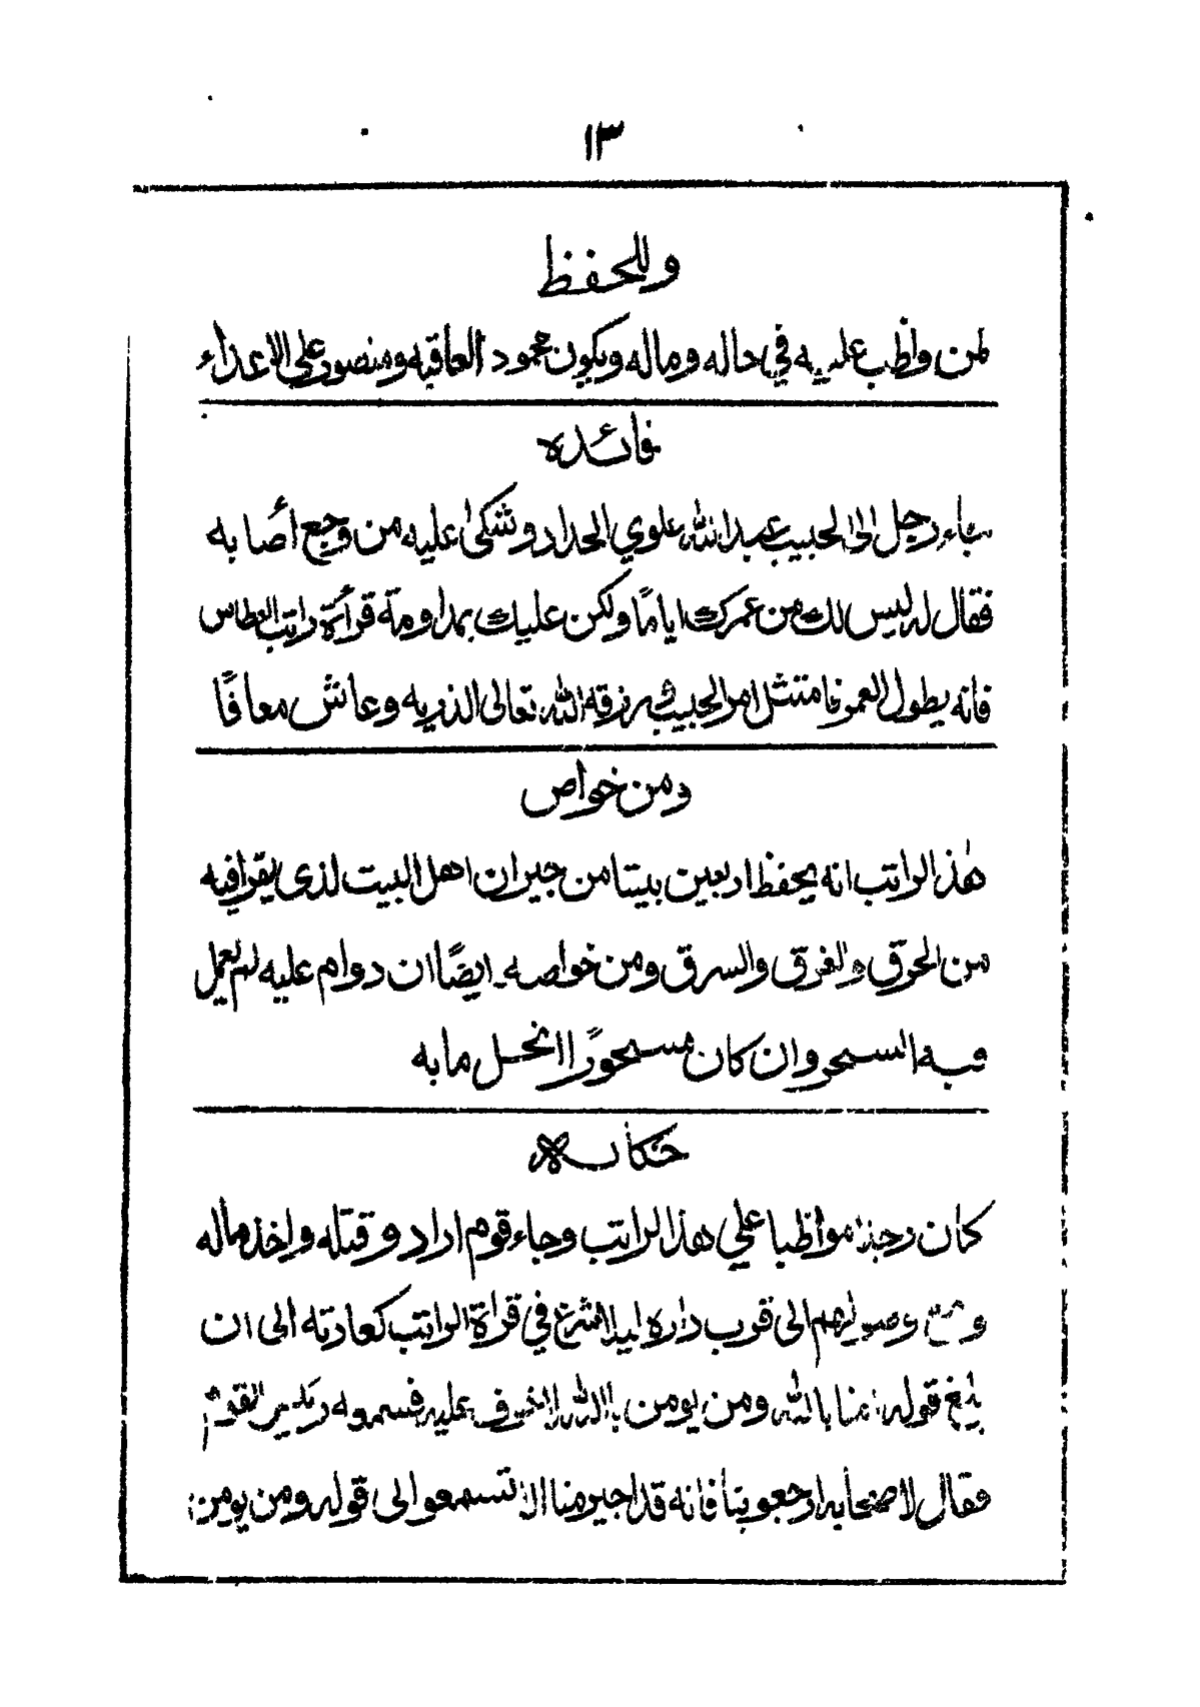 ١٣
وللحفظ
لمن واظب عليه في حاله وماله ويكون محمود العاقبه ومنصور على الاعداء
فائده
جاء رجل الى الحبيب عبدالله علوي الحداد وشكى عليه من وجع أصابه
فقال له ليس لك من عمرك اياما ولكن عليك بمداومة قرأة راتب العطاس
فانه يطول العمر فامتثل امر الحبيب ثم رزقه الله تعالى الذريه وعاش معافًا
ومن خواص
هٰذ الراتب انه يحفظ اربعين بيتا من جيران اهل البيت لذى يقرافيه
من الحرق والغرق والسرق ومن خواصه ايضًا ان دوام عليه لم يعمل
فيه السحر وان كان مسحورًا انحل مابه
حكايه
كان رجلا مواظبا علي هذ الراتب وجاء قوم ارادو قتله واخذ ماله
ومع وصولهم الى قرب داره ليلا شرع في قراة الراتب كعادته الى ان
بلغ قوله امنا بالله ومن يومن باالله لا خوف عليه فسمعه رئيس القوم
فقال لاصحابه ارجعو بنا فانه قد اجير منا الا تسمعو الى قوله ومن يومن